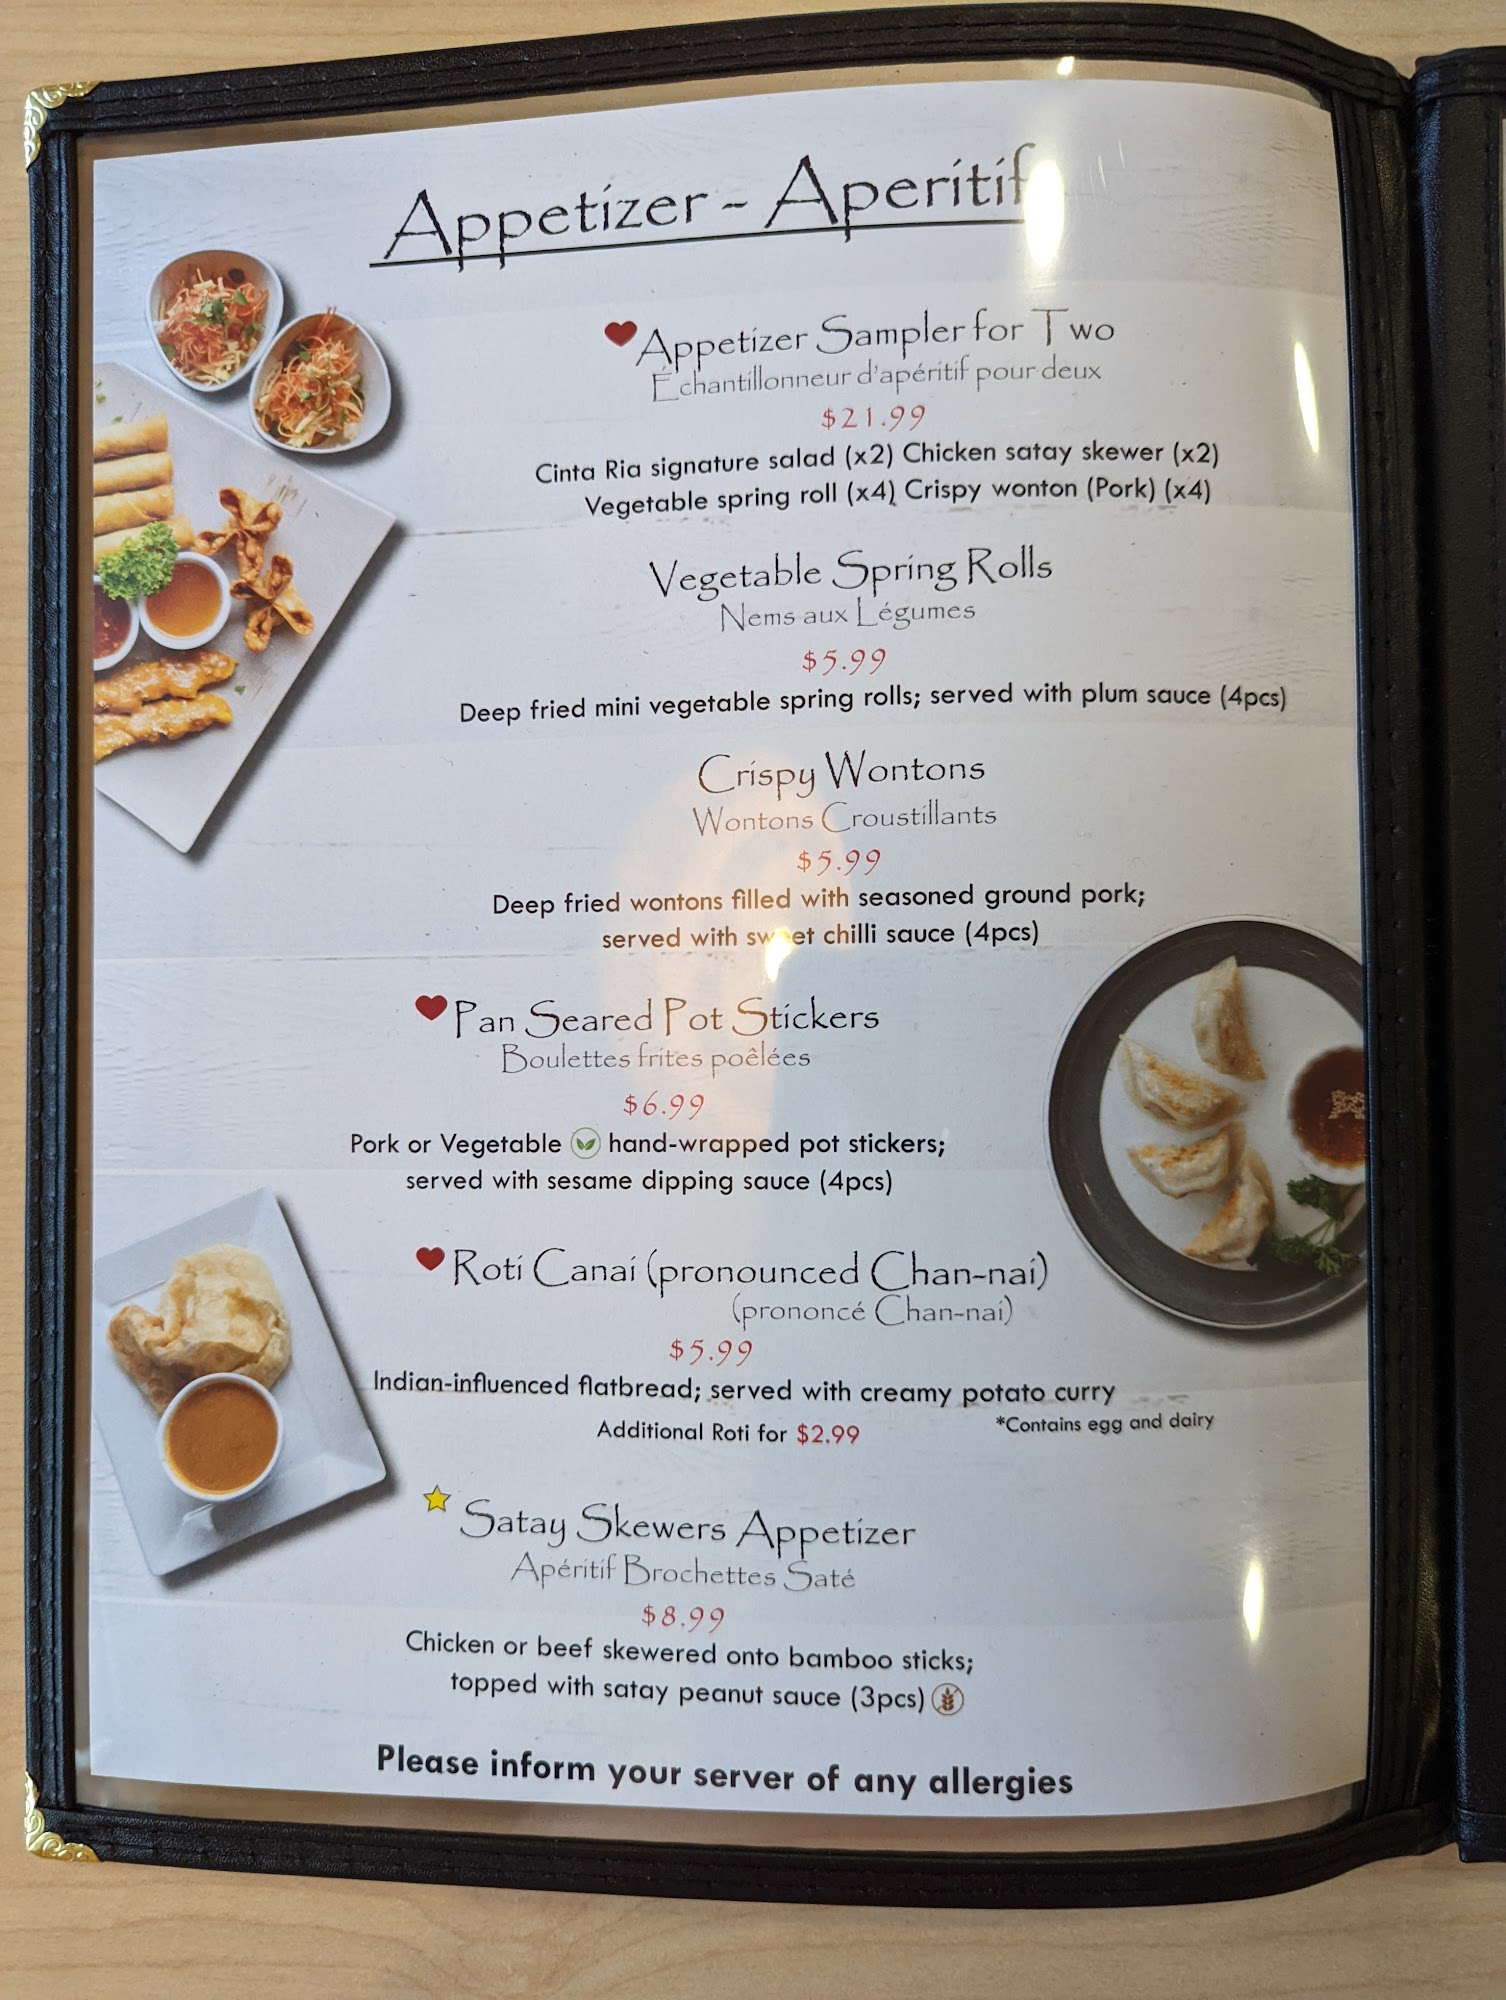 Appetizer - Aperitif
Appetizer Sampler for Two
Échantillonneur d'apéritif pour deux
$21.99
Cinta Ria signature salad (x2) Chicken satay skewer (x2)
Vegetable spring roll (x4) Crispy wonton (Pork) (x4)
Vegetable Spring Rolls
Nems aux Légumes
$5.99
Deep fried mini vegetable spring rolls; served with plum sauce (4pcs)
Crispy Wontons
Wontons Croustillants
$5.99
Deep fried wontons filled with seasoned ground pork;
served with sweet chilli sauce (4pcs)
Pan Seared Pot Stickers
Boulettes frites poêlées
$6.99
Pork or Vegetable hand-wrapped pot stickers;
served with sesame dipping sauce (4pcs)
Roti Canai (pronounced Chan-nai)
(prononcé Chan-nai)
$5.99
Indian-influenced flatbread; served with creamy potato curry
Additional Roti for $2.99 *Contains egg and dairy
Satay Skewers Appetizer
Apéritif Brochettes Saté
$8.99
Chicken or beef skewered onto bamboo sticks;
topped with satay peanut sauce (3pcs)
Please inform your server of any allergies